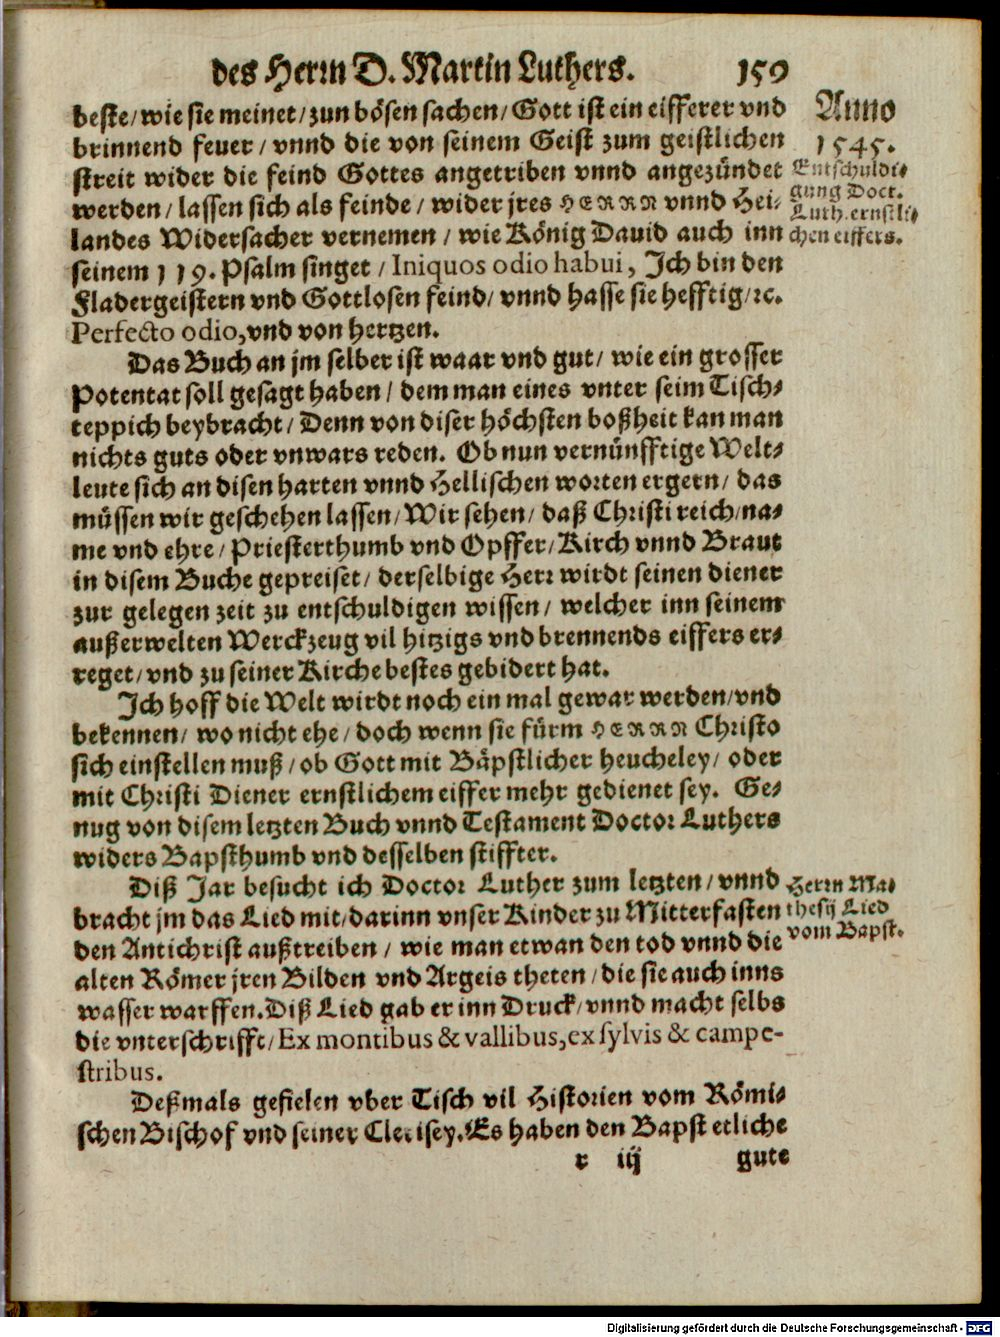 des Herrn D. Martin Luthers. 159
beste/ wie sie meinet/ zun bösen sachen/ Gott ist ein eifferer vnd
brinnend feuer/ vnnd die von seinem Geist zum geistlichen
streit wider die feind Gottes angetriben vnnd angezündet
werden/ lassen sich als feinde/ wider jres HERRN vnnd Hei-
landes Widersacher vernemen/ wie König Dauid auch inn
seinem 119. Psalm singet/ Iniquos odio habui, Ich bin den
Fladergeistern vnd Gottlosen feind/ vnnd hasse sie hefftig/ ꝛc.
Perfecto odio, vnd von hertzen.
Anno
1545.
Entschuldi-
gung Doct.
Luth. ernstli-
chen eiffers.
Das Buch an jm selber ist waar vnd gut/ wie ein grosser
Potentat soll gesagt haben/ dem man eines vnter seim Tisch-
teppich beybracht/ Denn von diser höchsten boßheit kan man
nichts guts oder vnwars reden. Ob nun vernünfftige Welt-
leute sich an disen harten vnnd Hellischen worten ergern/ das
müssen wir geschehen lassen/ Wir sehen/ daß Christi reich/ na-
me vnd ehre/ Priesterthumb vnd Opffer/ Kirch vnnd Braut
in disem Buche gepreiset/ derselbige Herr wirdt seinen diener
zur gelegen zeit zu entschuldigen wissen/ welcher inn seinem
außerwelten Werckzeug vil hitzigs vnd brennends eiffers er-
reget/ vnd zu seiner Kirche bestes gebidert hat.
Ich hoff die Welt wirdt noch ein mal gewar werden/ vnd
bekennen/ wo nicht ehe/ doch wenn sie fürm HERRN Christo
sich einstellen muß/ ob Gott mit Bäpstlicher heucheley/ oder
mit Christi Diener ernstlichem eiffer mehr gedienet sey. Ge-
nug von disem letzten Buch vnnd Testament Doctor Luthers
widers Bapsthumb vnd desselben stiffter.
Diß Jar besucht ich Doctor Luther zum letzten/ vnnd
bracht jm das Lied mit/ darinn vnser Kinder zu Mitterfasten
den Antichrist außtreiben/ wie man etwan den tod vnnd die
alten Römer jren Bilden vnd Argeis theten/ die sie auch inns
wasser warffen. Diß Lied gab er inn Druck/ vnnd macht selbs
die vnterschrifft/ Ex montibus & vallibus, ex sylvis & campe-
stribus.
Herrn Ma-
thesij Lied
vom Bapst.
Deßmals gefielen vber Tisch vil Historien vom Römi-
schen Bischof vnd seiner Clerisey. Es haben den Bapst etliche
r iij gute
Digitalisierung gefördert durch die Deutsche Forschungsgemeinschaft - DFG